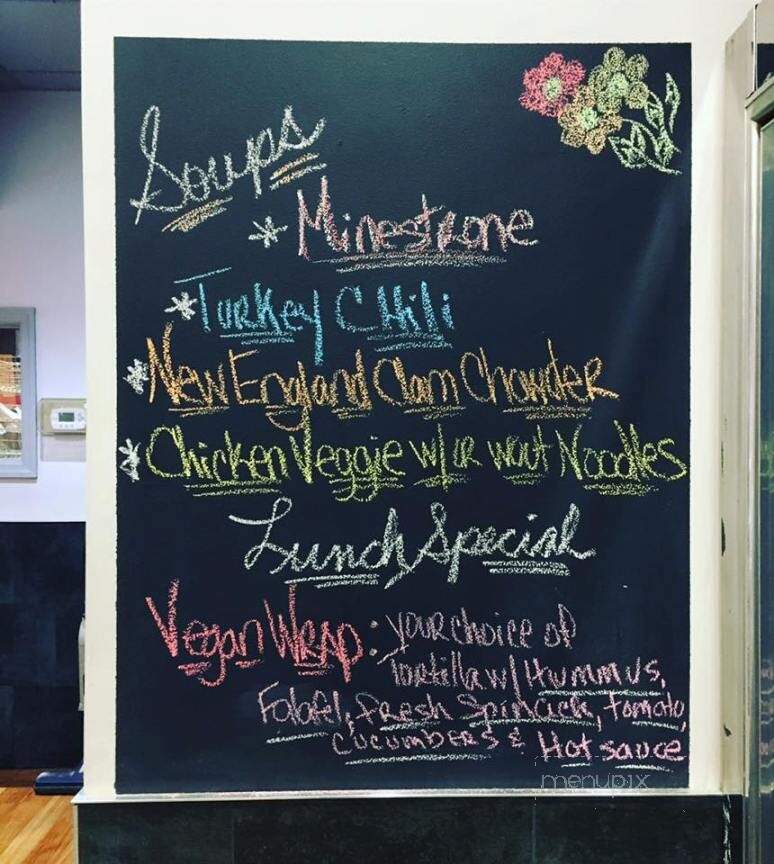 Soups
* Minestrone
* Turkey Chili
* New England Clam Chowder
* Chicken Veggie w/ or wout Noodles
Lunch Special
Vegan Wrap: your choice of
tortilla w/ Hummus,
Falafel, fresh Spinach, tomato,
cucumbers & Hot sauce
menupix